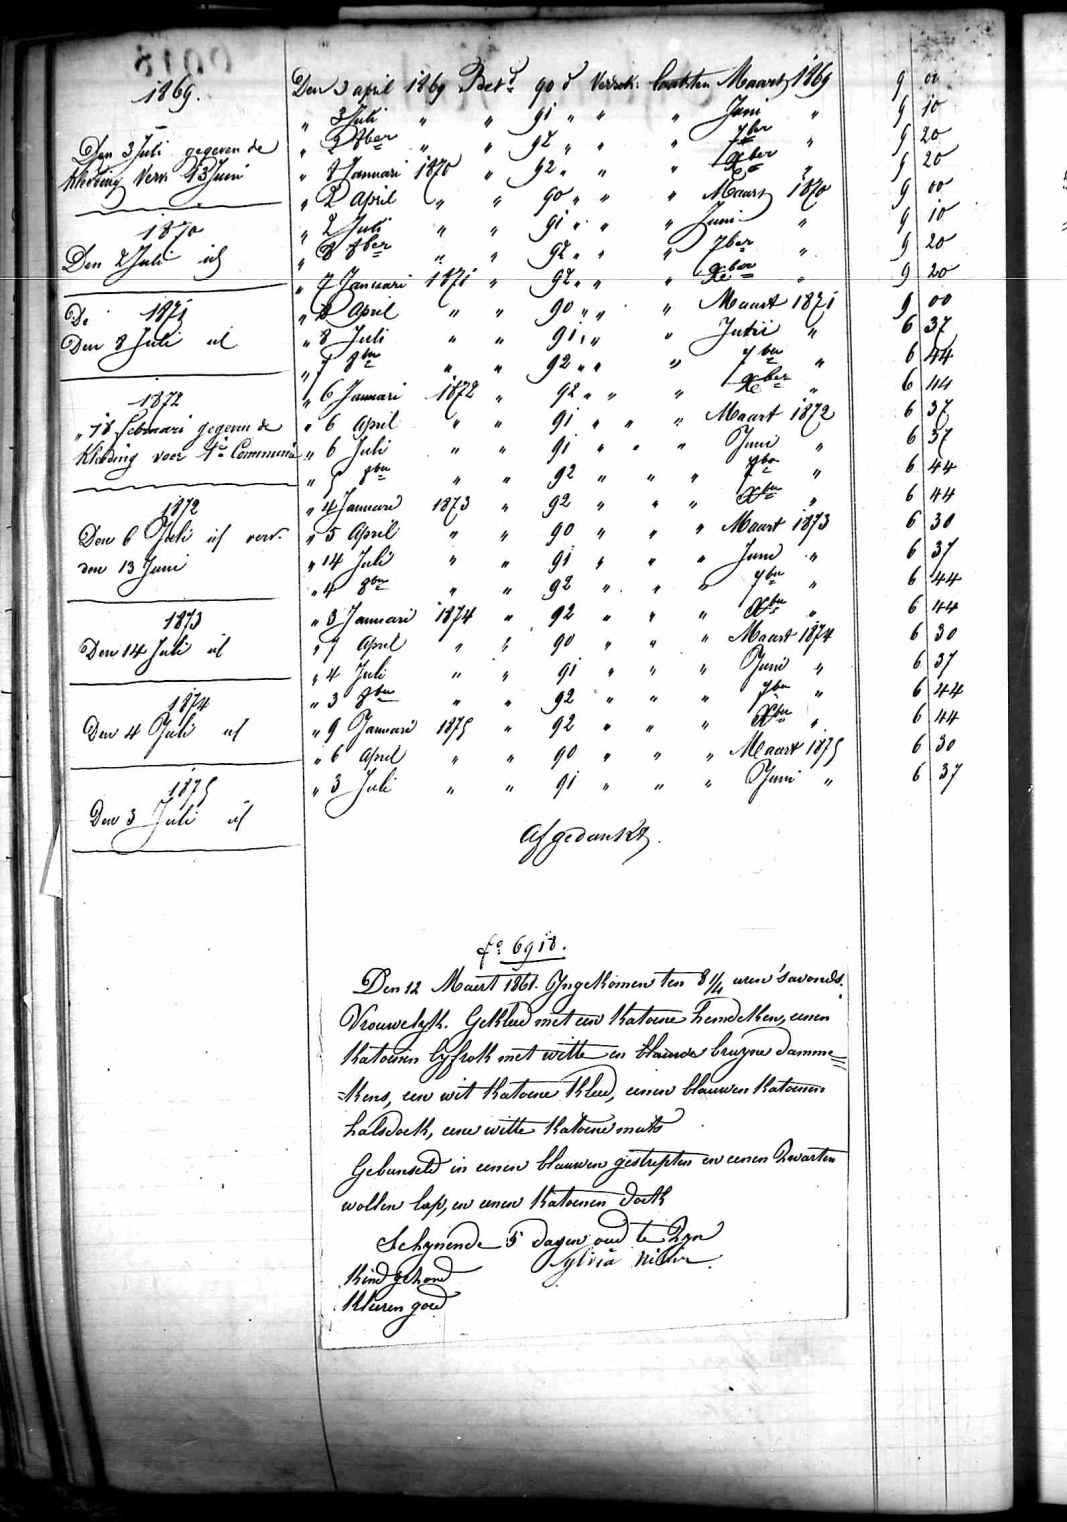 1869.
Den 3 Juli gegeven de
kleding Verv. 13 Juni
1870
Den 2 Juli id
1871
De
Den 8 Juli id
1872
" 18 Februari gegeven de
kleding voor 1e Communie
1872
Den 6 Juli id verv.
den 13 Juni
1873
Den 14 Juli id
1874
Den 4 Juli id
1875
Den 3 Juli id
Den 3 april 1869 Betd 90 d Verschr. laatsten Maart 1869 9 00
" 3 Juli " " 91 " " " Juni " 9 10
" 2 8ber " " 92 " " " 7ber " 9 20
" 8 Januari 1870 " 92 " " " Xber " 9 20
" 2 April " " 90 " " " Maart 1870 9 00
" 2 Juli " " 91 " " " Juni 9 10
" 8 8ber " " 92 " " " 7ber " 9 20
" 7 Januari 1871 " 92 " " " Xber " 9 20
" 8 April " " 90 " " " Maart 1871 9 00
" 8 Juli " " 91 " " " Junii " 6 37
" 7 8ber " " 92 " " " 7ber " 6 44
" 6 Januari 1872 " 92 " " " Xber " 6 44
" 6 April " " 91 " " " Maart 1872 6 37
" 6 Juli " " 91 " " " Juni " 6 37
" 5 8ber " " 92 " " " 7ber " 6 44
" 4 Januari 1873 " 92 " " " Xber " 6 44
" 5 April " " 90 " " " Maart 1873 6 30
" 14 Juli " " 91 " " " Juni " 6 37
" 4 8ber " " 92 " " " 7ber " 6 44
" 3 Januari 1874 " 92 " " " Xber " 6 44
" 7 April " " 90 " " " Maart 1874 6 30
" 4 Juli " " 91 " " " Juni " 6 37
" 3 8ber " " 92 " " " 7ber " 6 44
" 9 Januari 1875 " 92 " " " Xber " 6 44
" 6 April " " 90 " " " Maart 1875 6 30
" 3 Juli " " 91 " " " Juni " 6 37
Afgedankt.
fo 6918.
Den 12 Maert 1861. Ingekomen ten 8 1/4 uren 'savonds.
Vrouwelyk. Gekleed met een katoene hemdeken, eenen
katoenen lyfrok met witte en blauwe bruyne damme=
=kens, een wit katoene kleed, eenen blauwen katoenen
halsdoek, eene witte katoene muts
Gebunseld in eenen blauwen gestrepten en eenen zwarten
wollen lap, en eenen katoenen doek
Schynende 5 dagen oud te zyn
Sylvia
Kind gezond
Kleeren goed